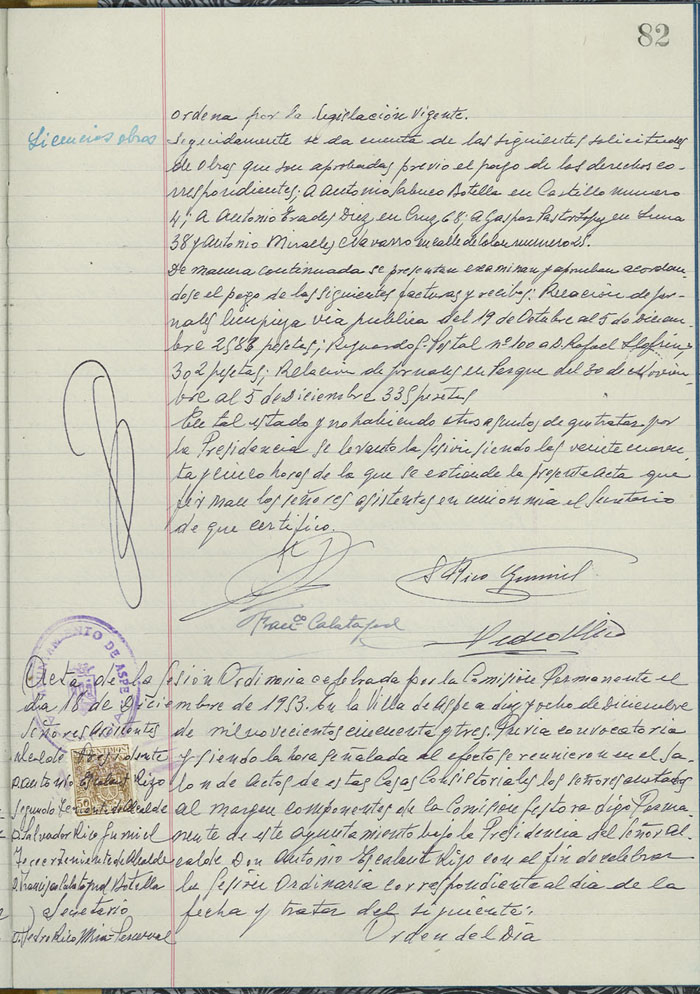 82
Licencias obras
ordena por la legislación vigente.
Seguidamente se da cuenta de las siguientes solicitudes
de obras que son aprobadas previo el pago de los derechos co-
rrespondientes; A Antonio Sabuco Botella en Castillo numero
4; A Antonio Erades Diez en Cruz 68: a Gaspar Pastor en Luna
38 y Antonio Miralles Navarro en calle de Colon numero 25.
De manera continuada se presentan examinan y aprueban acordan-
dose el pago de las siguientes facturas y recibos: Relación de jor-
nales limpieza via publica del 19 de Octubre al 5 de Diciem-
bre 2583 pesetas; Resguardo G. Postal nº 100 a D. Rafael
302 pesetas; Relacion de jornales en Parque del 30 de Noviem-
bre al 5 de Diciembre 335 pesetas
En tal estado y no habiendo otros asuntos de que tratar por
la Presidencia se levanto la sesion siendo las veinte
y cinco horas de la que se extiende la presente acta que
firman los señores asistentes en union mia el Secretario
de que certifico.
S Rico Gumiel
Franco Calatayud
Pedro Rico
AYUNTAMIENTO DE ASPE
Acta de la Sesión Ordinaria celebrada por la Comisión Permanente el
dia 18 de Diciembre de 1953. En la Villa de Aspe a diez y ocho de Diciembre
de mil novecientos cincuenta y tres. Previa convocatoria
y siendo la hora señalada al efecto se reunieron en el Sa-
lon de Actos de estas Casas Consistoriales los señores anotados
al margen componentes de la Comision Gestora digo Perma-
nente de este Ayuntamiento bajo la Presidencia del Señor Al-
calde Don Antonio Escalant Rizo con el fin de celebrar
la Sesión Ordinaria correspondiente al dia de la
fecha y tratar del siguiente:
Orden del Dia
Señores Asistentes
Alcalde Presidente
D. Antonio Escalant Rizo
Segundo Teniente de Alcalde
D. Salvador Rico Gumiel
Tercer Teniente de Alcalde
D. Francisco Calatayud Botella
Secretario
D. Pedro Rico